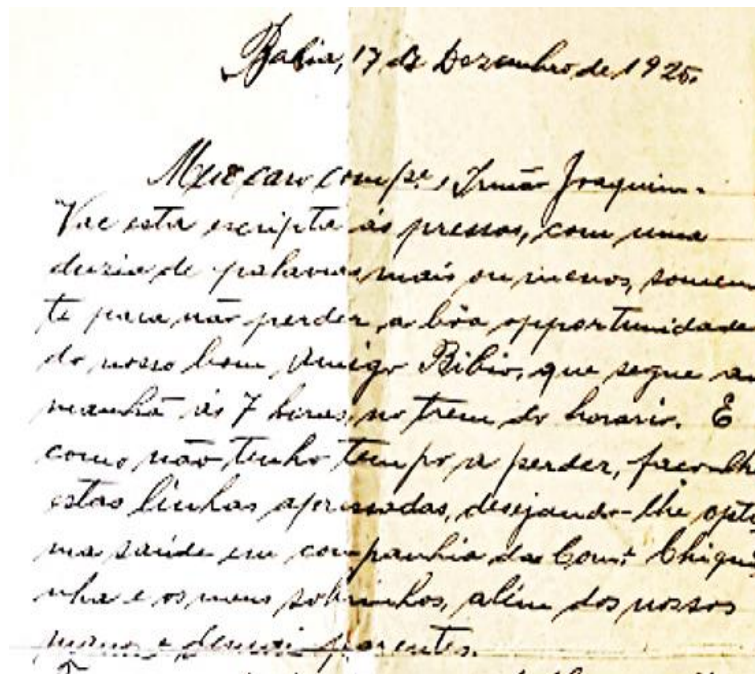 Bahia, 17 de Dezembro de 1925.
Meu caro comp.e e Irmão Joaquim.
Vae esta escripta ás pressas, com uma
duzia de palavras mais ou menos, somen
te para não perder a bôa opportunidade
do nosso bom amigo Bibio, que segue a
manhã ás 7 horas, no trem do horario. E
como não tenho tempo a perder, faço-lhe
estas linhas apressadas, desejando-lhe opti
ma saúde em companhia da Com.e Chiqui
nha e os meus sobrinhos, além dos nossos
manos e demais parentes.